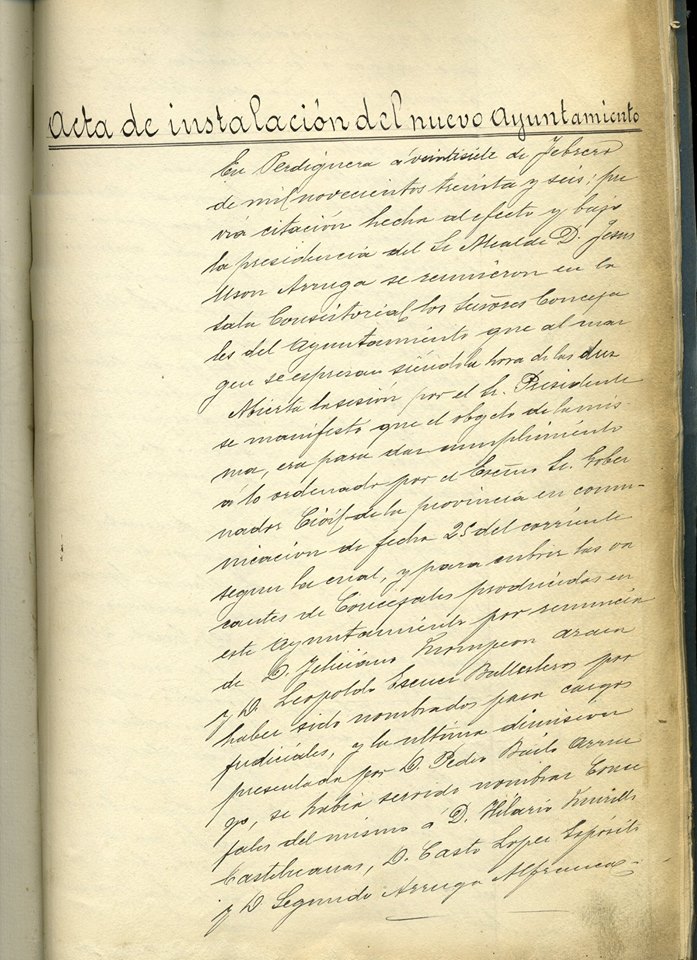 Acta de instalación del nuevo Ayuntamiento
En Perdiguera á veintisiete de Febrero
de mil novecientos treinta y seis; pre
via citación hecha al efecto y bajo
la presidencia del Sr Alcalde D. Jesus
Uson Arruga se reunieron en la
sala Consistorial los Señores Conceja
les del Ayuntamiento que al mar
gen se espresan siendo la hora de las diez
Abierta la sesión por el Sr. Presidente
se manifesto que el objeto de la mis-
ma, era para dar cumplimiento
a lo ordenado por el Excmo Sr. Gober
nador Civil de la provincia en comu-
nicación de fecha 25 del corriente
segun la cual, y para cubrir las va
cantes de Concejales producidas en
este Ayuntamiento por renuncia
de D. Feliciano
y D. Leopoldo Escuer Ballesteros por
haber sido nombrados para cargos
judiciales, y la ultima dimision
presentada por D. Pedro Bailo Arru
ga, se habia servido nombrar Conce
jales del mismo á D. Hilario Murillo
D. Casto Lopez Espósito
y D Segundo Arruga Alfranca.